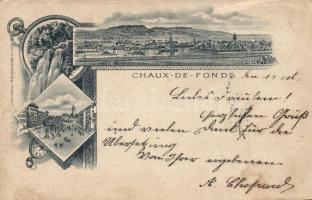 CHAUX-DE-FONDS
den 11 Oct.
Liebes Fräulein!
Herzlichen Gruß
und vielen Dank für die
Übersetzung
Von Ihrer ergebenen
A. Chopard